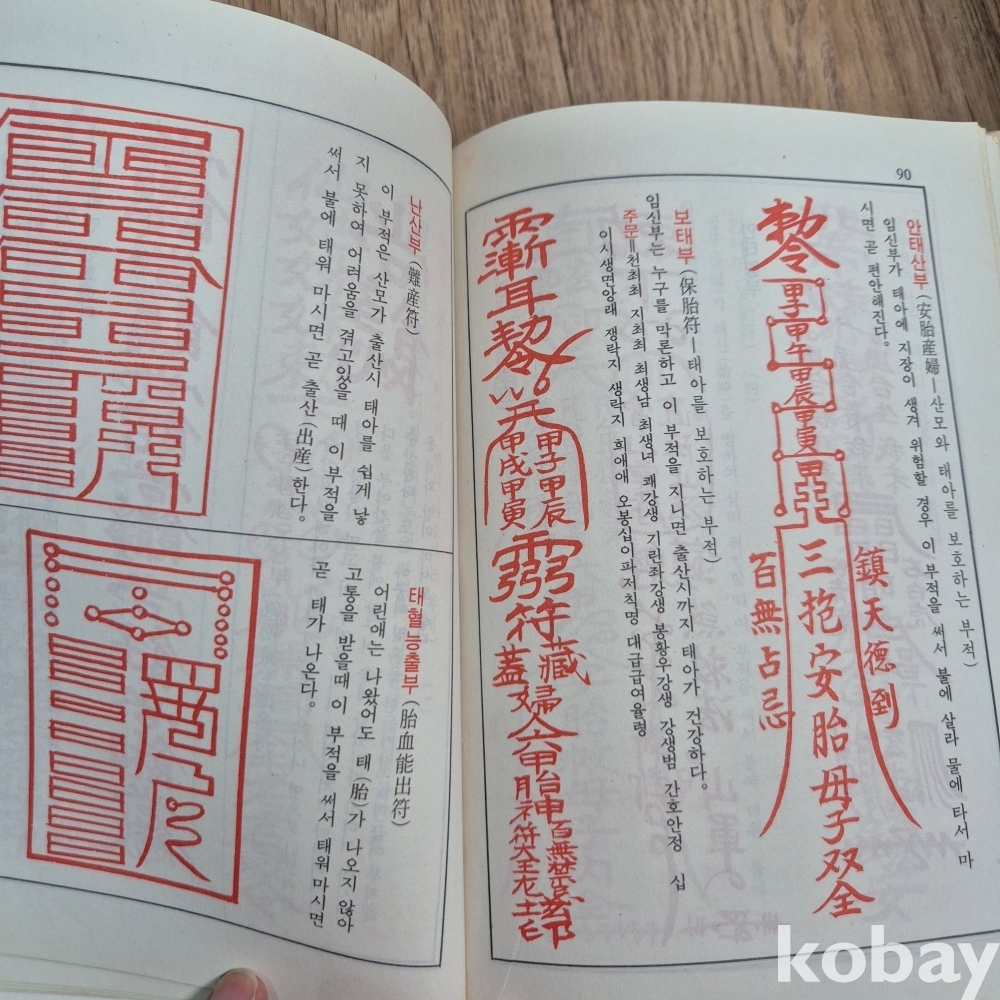 90
안태산부 (安胎産婦—산모와 태아를 보호하는 부적)
임신부가 태아에 지장이 생겨 위험할 경우 이 부적을 써서 불에 살라 물에 타서 마
시면 곧 편안해진다.
勅令
甲子
甲午
甲辰
甲寅
三抱安胎母子双全
鎮天德到
百無占忌
보태부 (保胎符—태아를 보호하는 부적)
임신부는 누구를 막론하고 이 부적을 지니면 출산시까지 태아가 건강하다.
주문=천최최 지최최 최생남 최생녀 쾌강생 기린좌강생 봉황우강생 강생범 간호안정 십
이시생면앙래 쟁락지 생락지 희애애 오봉십이파저칙명 대급급여율령
甲子甲辰
甲戌甲寅
符
藏
蓋婦
胎神
난산부 (難産符)
이 부적은 산모가 출산시 태아를 쉽게 낳
지 못하여 어려움을 겪고있을 때 이 부적을
써서 불에 태워 마시면 곧 출산(出産)한다.
태혈능출부 (胎血能出符)
어린애는 나왔어도 태(胎)가 나오지 않아
고통을 받을때 이 부적을 써서 태워마시면
곧 태가 나온다.
kobay